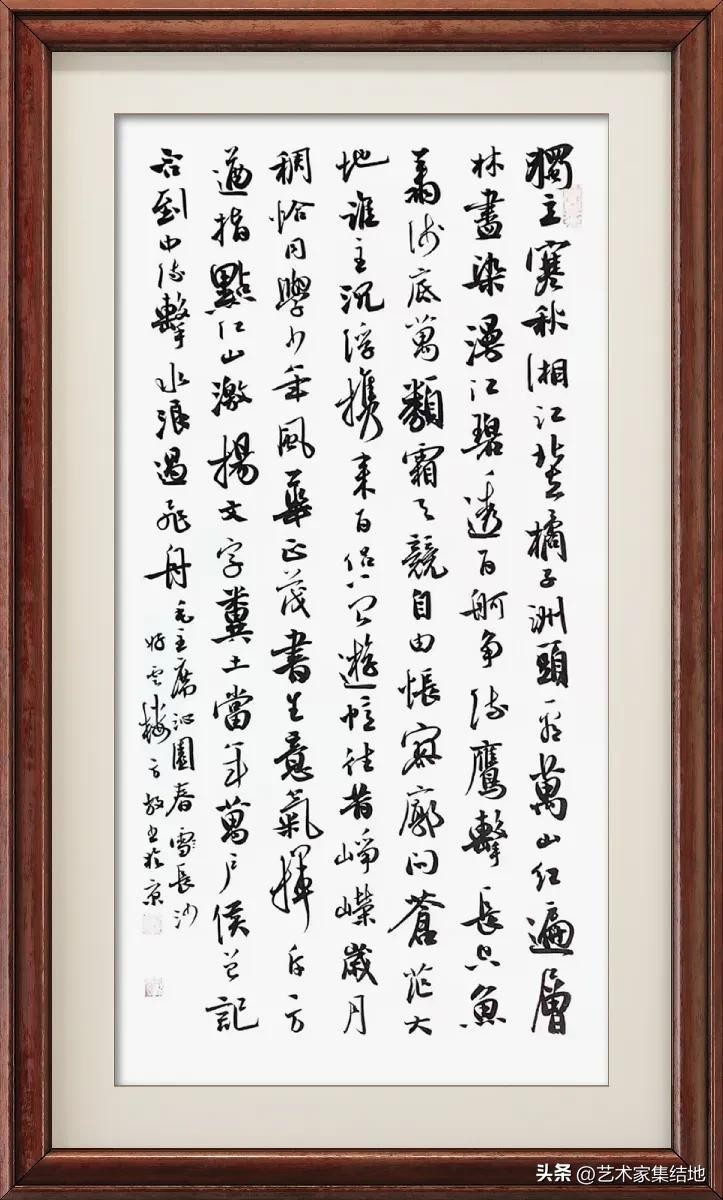 獨立寒秋湘江北去橘子洲頭看萬山红遍層
林盡染漫江碧透百舸争流鷹擊長空魚
翔浅底萬類霜天競自由悵寥廓问蒼茫大
地誰主沉浮携来百侣曾遊憶往昔崢嶸歲月
稠恰同學少年風華正茂書生意氣揮斥方
遒指點江山激揚文字糞土當年萬户侯曾記
否到中流擊水浪遏飛舟
毛主席沁園春雪長沙
雲樓方书於京
头条 @艺术家集结地